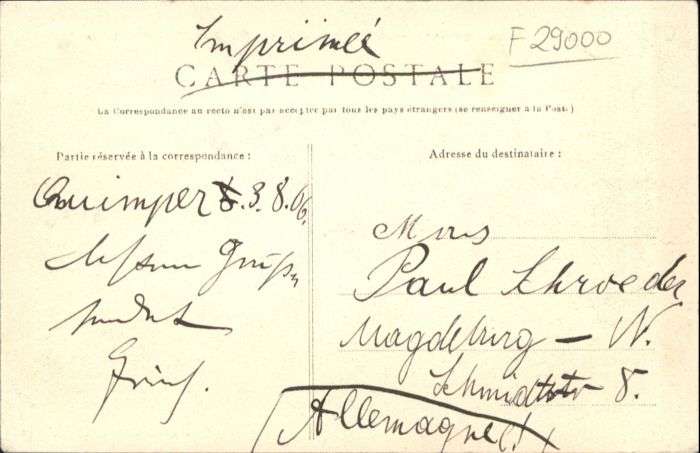 Imprimée
F 29000
CARTE POSTALE
La Correspondance au recto n'est pas acceptée par tous les pays étrangers (se renseigner à la Poste.)
Partie réservée à la correspondance :
Quimper 3.8.06.
sendet
Adresse du destinataire :
Mons
Paul Schroeder
Magdeburg – W.
Schmidtstr 8.
Allemagne!